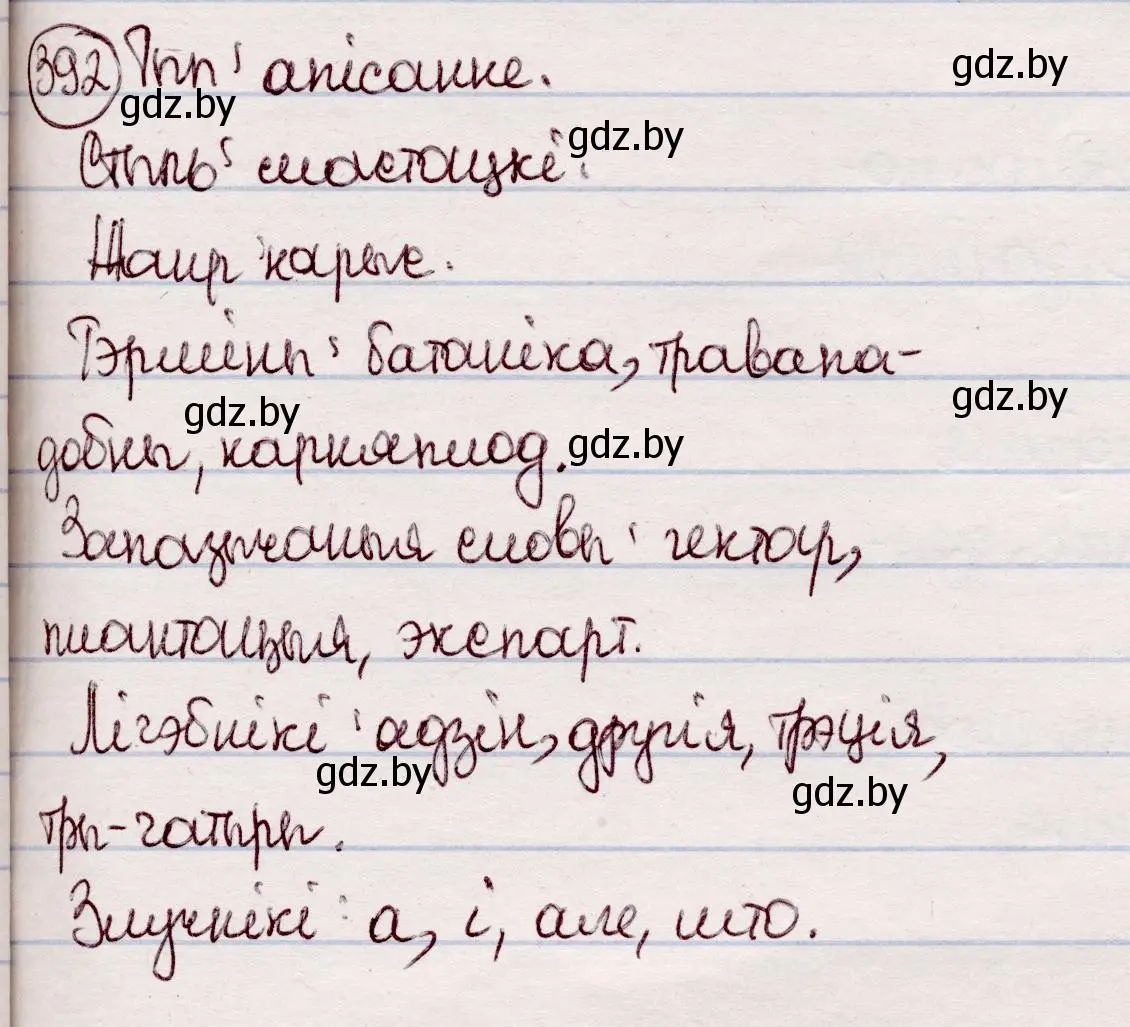 392 Тып: апісанне. gdz.by
gdz.by
Стыль: мастацкі. gdz.by
Жанр: нарыс.
Тэрміны: батаніка, травапа-
gdz.by gdz.by
добны, карняплод. gdz.by
Запазычаныя словы: гектар,
плантацыя, экспарт.
Лічэбнікі: адзін, другія, трэція,
gdz.by gdz.by
тры-чатыры.
Злучнікі: а, і, але, што.